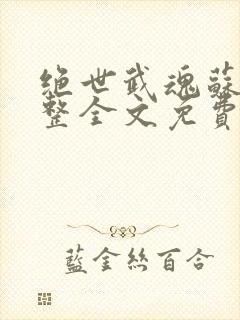 絕世武魂蘇
整全文免費
藍金絲百合